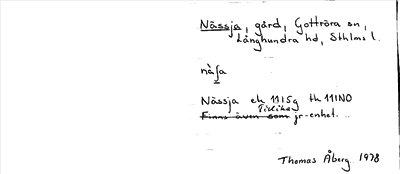 Nässja, gård, Gottröra sn,
Långhundra hd, Sthlms l.
Nässja ek 11I5g th 11INO
Tillika
Finns även som jr-enhet.
Thomas Åberg 1978